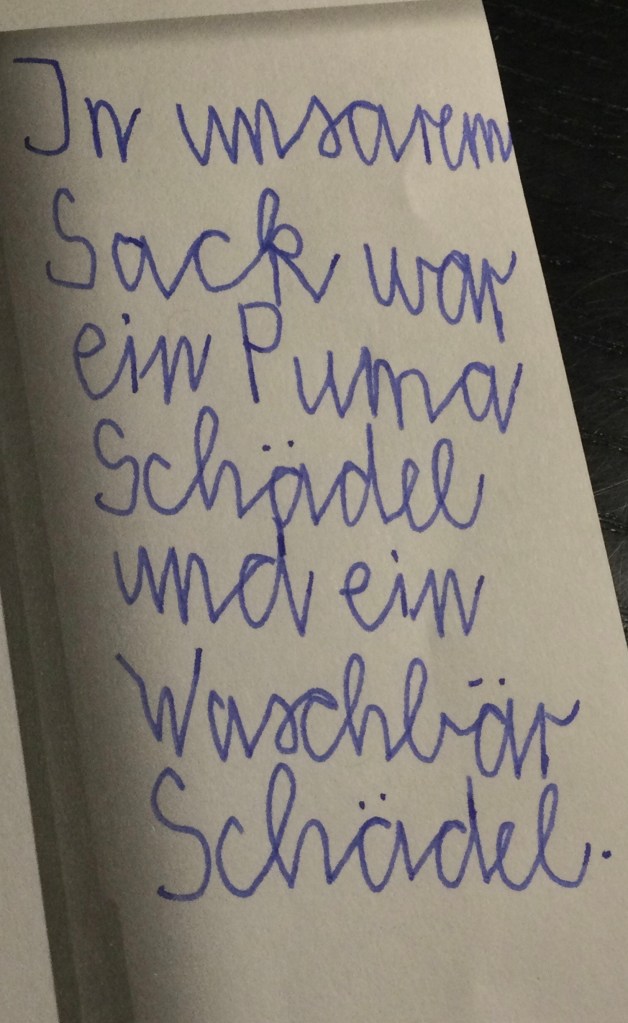 In unsarem
Sack war
ein Puma
Schädel
und ein
Waschbär
Schädel.